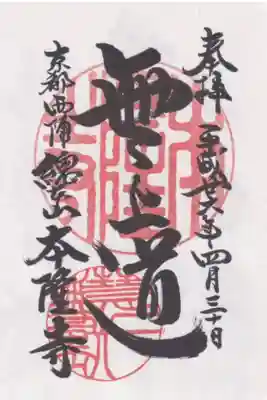 奉拝 平成廿六年四月三十日
無上道
京都西陣 総本山 本隆寺